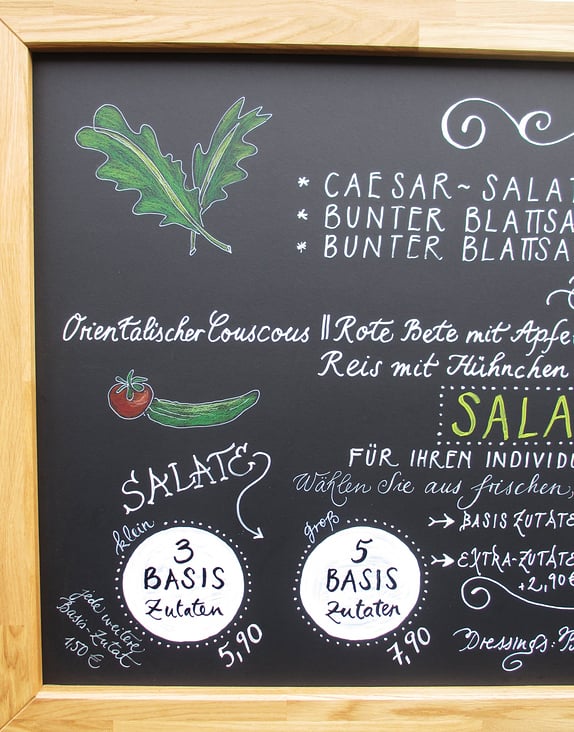 * CAESAR~SALAT
* BUNTER BLATTSA
* BUNTER BLATTSA
Orientalischer Couscous || Rote Bete mit Apfe
Reis mit Hühnchen
SALA
FÜR IHREN INDIVIDU
Wählen Sie aus frischen,
BASIS ZUTATE
EXTRA-ZUTATE
+2,90€
Dressings: B
SALATE
klein
3
BASIS
Zutaten
5,90
groß
5
BASIS
Zutaten
7,90
jede weitere
Basis-Zutat
1,50 €